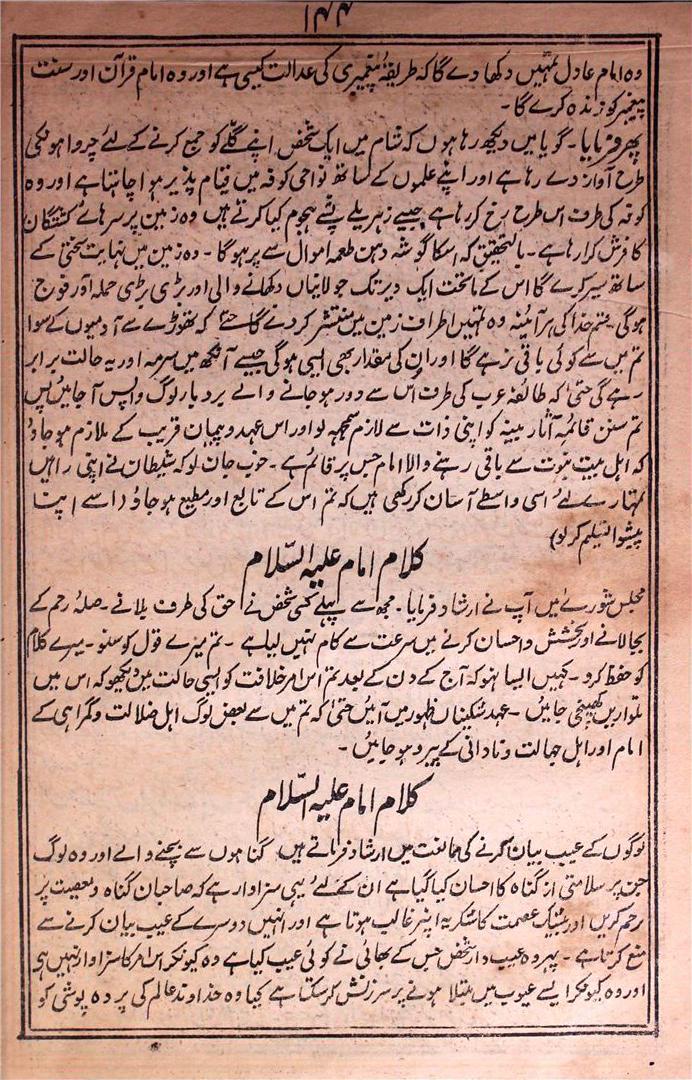 ۱۴۴
وہ امام عادل تمہیں دکھا دے گا کہ طریقۂ پیغمبری کی عدالت کیسی ہے اور وہ امام قرآن اور سنت
پیغمبر کو زندہ کرے گا۔
پھر فرمایا۔ گویا میں دیکھ رہا ہوں کہ شام میں ایک شخص اپنے گلّے کو جمع کرنے کے لئے چرواہو نکی
طرح آواز دے رہا ہے اور اپنے علموں کے ساتھ نواحی کوفہ میں قیام پذیر ہوا چاہتا ہے اور وہ
کوفہ کی طرف اس طرح رخ کر رہا ہے جیسے زہریلے ہجوم کیا کرتے ہیں وہ زمین پر سرہائے کشتگان
کا فرش کرا رہا ہے۔ بالتحقیق کہ اسکا گوشہ دہن طعمہ اموال سے پر ہوگا۔ وہ زمین میں نہایت سختی کے
ساتھ سیر کرے گا اس کے ماتحت ایک دیر تک جولانیاں دکھانے والی اور بڑی بڑی حملہ آور فوج
ہوگی۔ قسم خدا کی ہر آئینہ وہ تمہیں اطراف زمین میں منتشر کر دے گا حتےٰ کہ تھوڑے سے آدمیوں کے سوا
تم میں سے کوئی باقی نہ رہے گا اور ان کی مقدار بھی ایسی ہوگی جیسے آنکھ میں سرمہ اور یہ حالت برابر
رہے گی حتیٰ کہ طائفۂ عرب کی طرف اس سے دور ہو جانے والے بردبار لوگ واپس آجائیں پس
تم سنن قائمہ آثار بینہ کو اپنی ذات سے لازم سمجہہ لو اور اس عہد و پیمان قریب کے ملازم ہو جاؤ
کہ اہل بیت نبوت سے باقی رہنے والا امام جس پر قائم ہے۔ خوب جان لو کہ شیطان نے اپنی راہیں
تمہارے لئے اسی واسطے آسان کر رکھی ہیں کہ تم اس کے تابع اور مطیع ہو جاؤ (اسے اپنا
پیشوا تسلیم کر لو)
کلام امام علیہ السّلام
مجلس شورےٰ میں آپ نے ارشاد فرمایا۔ مجھ سے پہلے کسی شخص نے حق کی طرف بلانے۔ صلۂ رحم کے
بجا لانے اور بخشش و احسان کرنے میں سرعت سے کام نہیں لیا ہے۔ تم میرے قول کو سنو۔ میرے کلام
کو حفظ کرو۔ کہیں ایسا نہو کہ آج کے دن کے بعد تم اس امر خلافت کو ایسی حالت میں دیکھو کہ اس میں
تلواریں کھینچی جائیں۔ عہد شکنیاں ظہور میں آئیں حتیٰ کہ تم میں سے بعض لوگ اہل ضلالت و گمراہی کے
امام اور اہل جہالت و نادانی کے پیرو ہو جائیں۔
کلام امام علیہ السّلام
لوگوں کے عیب بیان کرنے کی ممانعت میں ارشاد فرماتے ہیں گناہوں سے بچنے والے اور وہ لوگ
جن پر سلامتی از گناہ کا احسان کیا گیا ہے ان کے لئے یہی سزاوار ہے کہ صاحبان گناہ و معصیت پر
رحم کریں اور بیشک عصمت کا شکریہ اپنر غالب ہوتا ہے اور انہیں دوسرے کے عیب بیان کرنے سے
منع کرتا ہے۔ پہر وہ عیب دار شخص جس کے بھائی نے کوئی عیب کیا ہے وہ کیونکر اس امر کا سزاوار نہیں ہی
اور وہ کیونکر ایسے عیوب میں مبتلا ہونے پر سرزنش کر سکتا ہے کیا وہ خداوند عالم کی پردہ پوشی کو